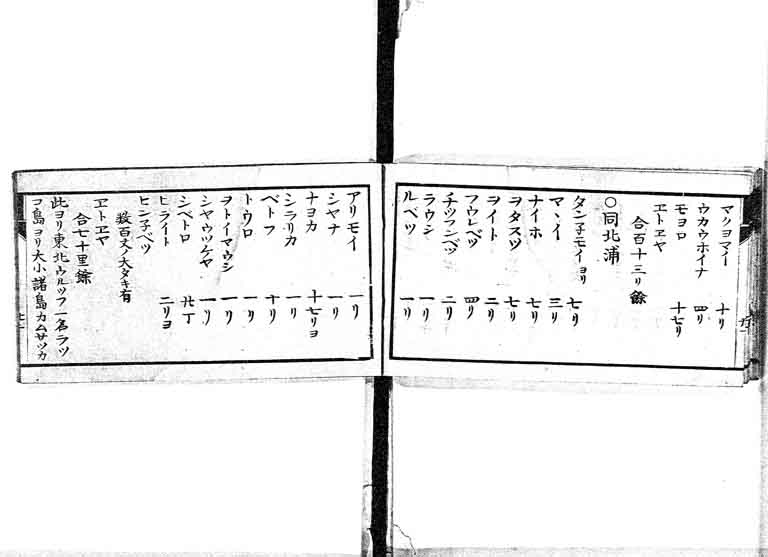 マクヨマイ 十リ
ウカウホイナ 四リ
モヨロ 十七リ
ヱトヱヤ
合百十三リ餘
○同北浦
タン子モイヨリ 七リ
マヽイ 三リ
ナイホ 七リ
ヲタスツ 七リ
ヲイト 二リ
フウレベツ 四リ
チツフンベツ 二リ
ラウシ 一リ
ルベツ 一リ
アリモイ 一リ
シヤナ 一リ
ナヨカ 十七リヨ
シラリカ 一リ
ベトフ 十リ
トウロ 一リ
ヲトイマウシ 一リ
シヤウツケヤ 一リ
シベトロ 廿丁
ヒライト 二リヨ
ヒン子ベツ
数百丈ノ大タキ有
ヱトヱヤ
合七十里餘
此ヨリ東北ウルツフ一名ラツ
コ島ヨリ大小諸島カムサツカ